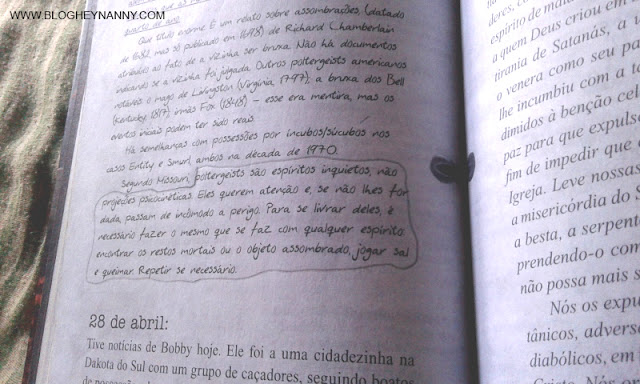 WWW.BLOGHEYNANNY.COM
quarto de ano.
Que título enorme. É um relato sobre assombrações, (datado
de 1682, mas só publicado em 1698) de Richard Chamberlain
atribuídas ao fato de a vizinha ser bruxa. Não há documentos
indicando se a vizinha foi julgada. Outros poltergeists americanos
notáveis: o mago de Livingston (Virginia, 1797); a bruxa dos Bell
(Kentucky, 1817); irmãs Fox (1848) – esse era mentira, mas os
eventos iniciais podem ter sido reais.
Há semelhanças com possessões por íncubos/súcubos nos
casos Entity e Smurl, ambos na década de 1970.
Segundo Missouri, poltergeists são espíritos inquietos, não
projeções psicocinéticas. Eles querem atenção e, se não lhes for
dada, passam de incômodo a perigo. Para se livrar deles, é
necessário fazer o mesmo que se faz com qualquer espírito:
encontrar os restos mortais ou o objeto assombrado, jogar sal
e queimar. Repetir se necessário.
28 de abril:
Tive notícias de Bobby hoje. Ele foi a uma cidadezinha na
Dakota do Sul com um grupo de caçadores, seguindo boatos
espírito de
a quem Deus criou em
tirania de Satanás, a
o venera como seu
lhe incumbiu com a
dimidos à benção
paz para que expuls
fim de impedir que
Igreja. Leve nossas
a misericórdia do
a besta, a serpen
prendendo-o com
não possa mais
Nós os expu
tânicos, advers
diabólicos, em